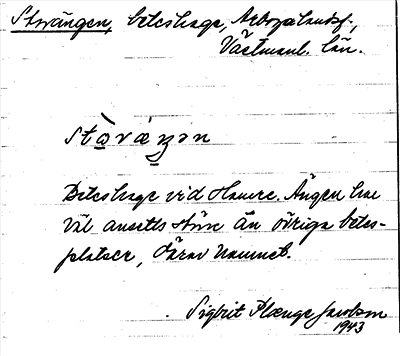 Storängen, beteshage, Arbogalandsf.,
Västmanl. län.
Stòrä́ŋən
Beteshage vid Hamre. Ängen har
väl ansetts större än övriga betes-
platser, därav namnet.
Sigbrit Plænge Jacobson
1943